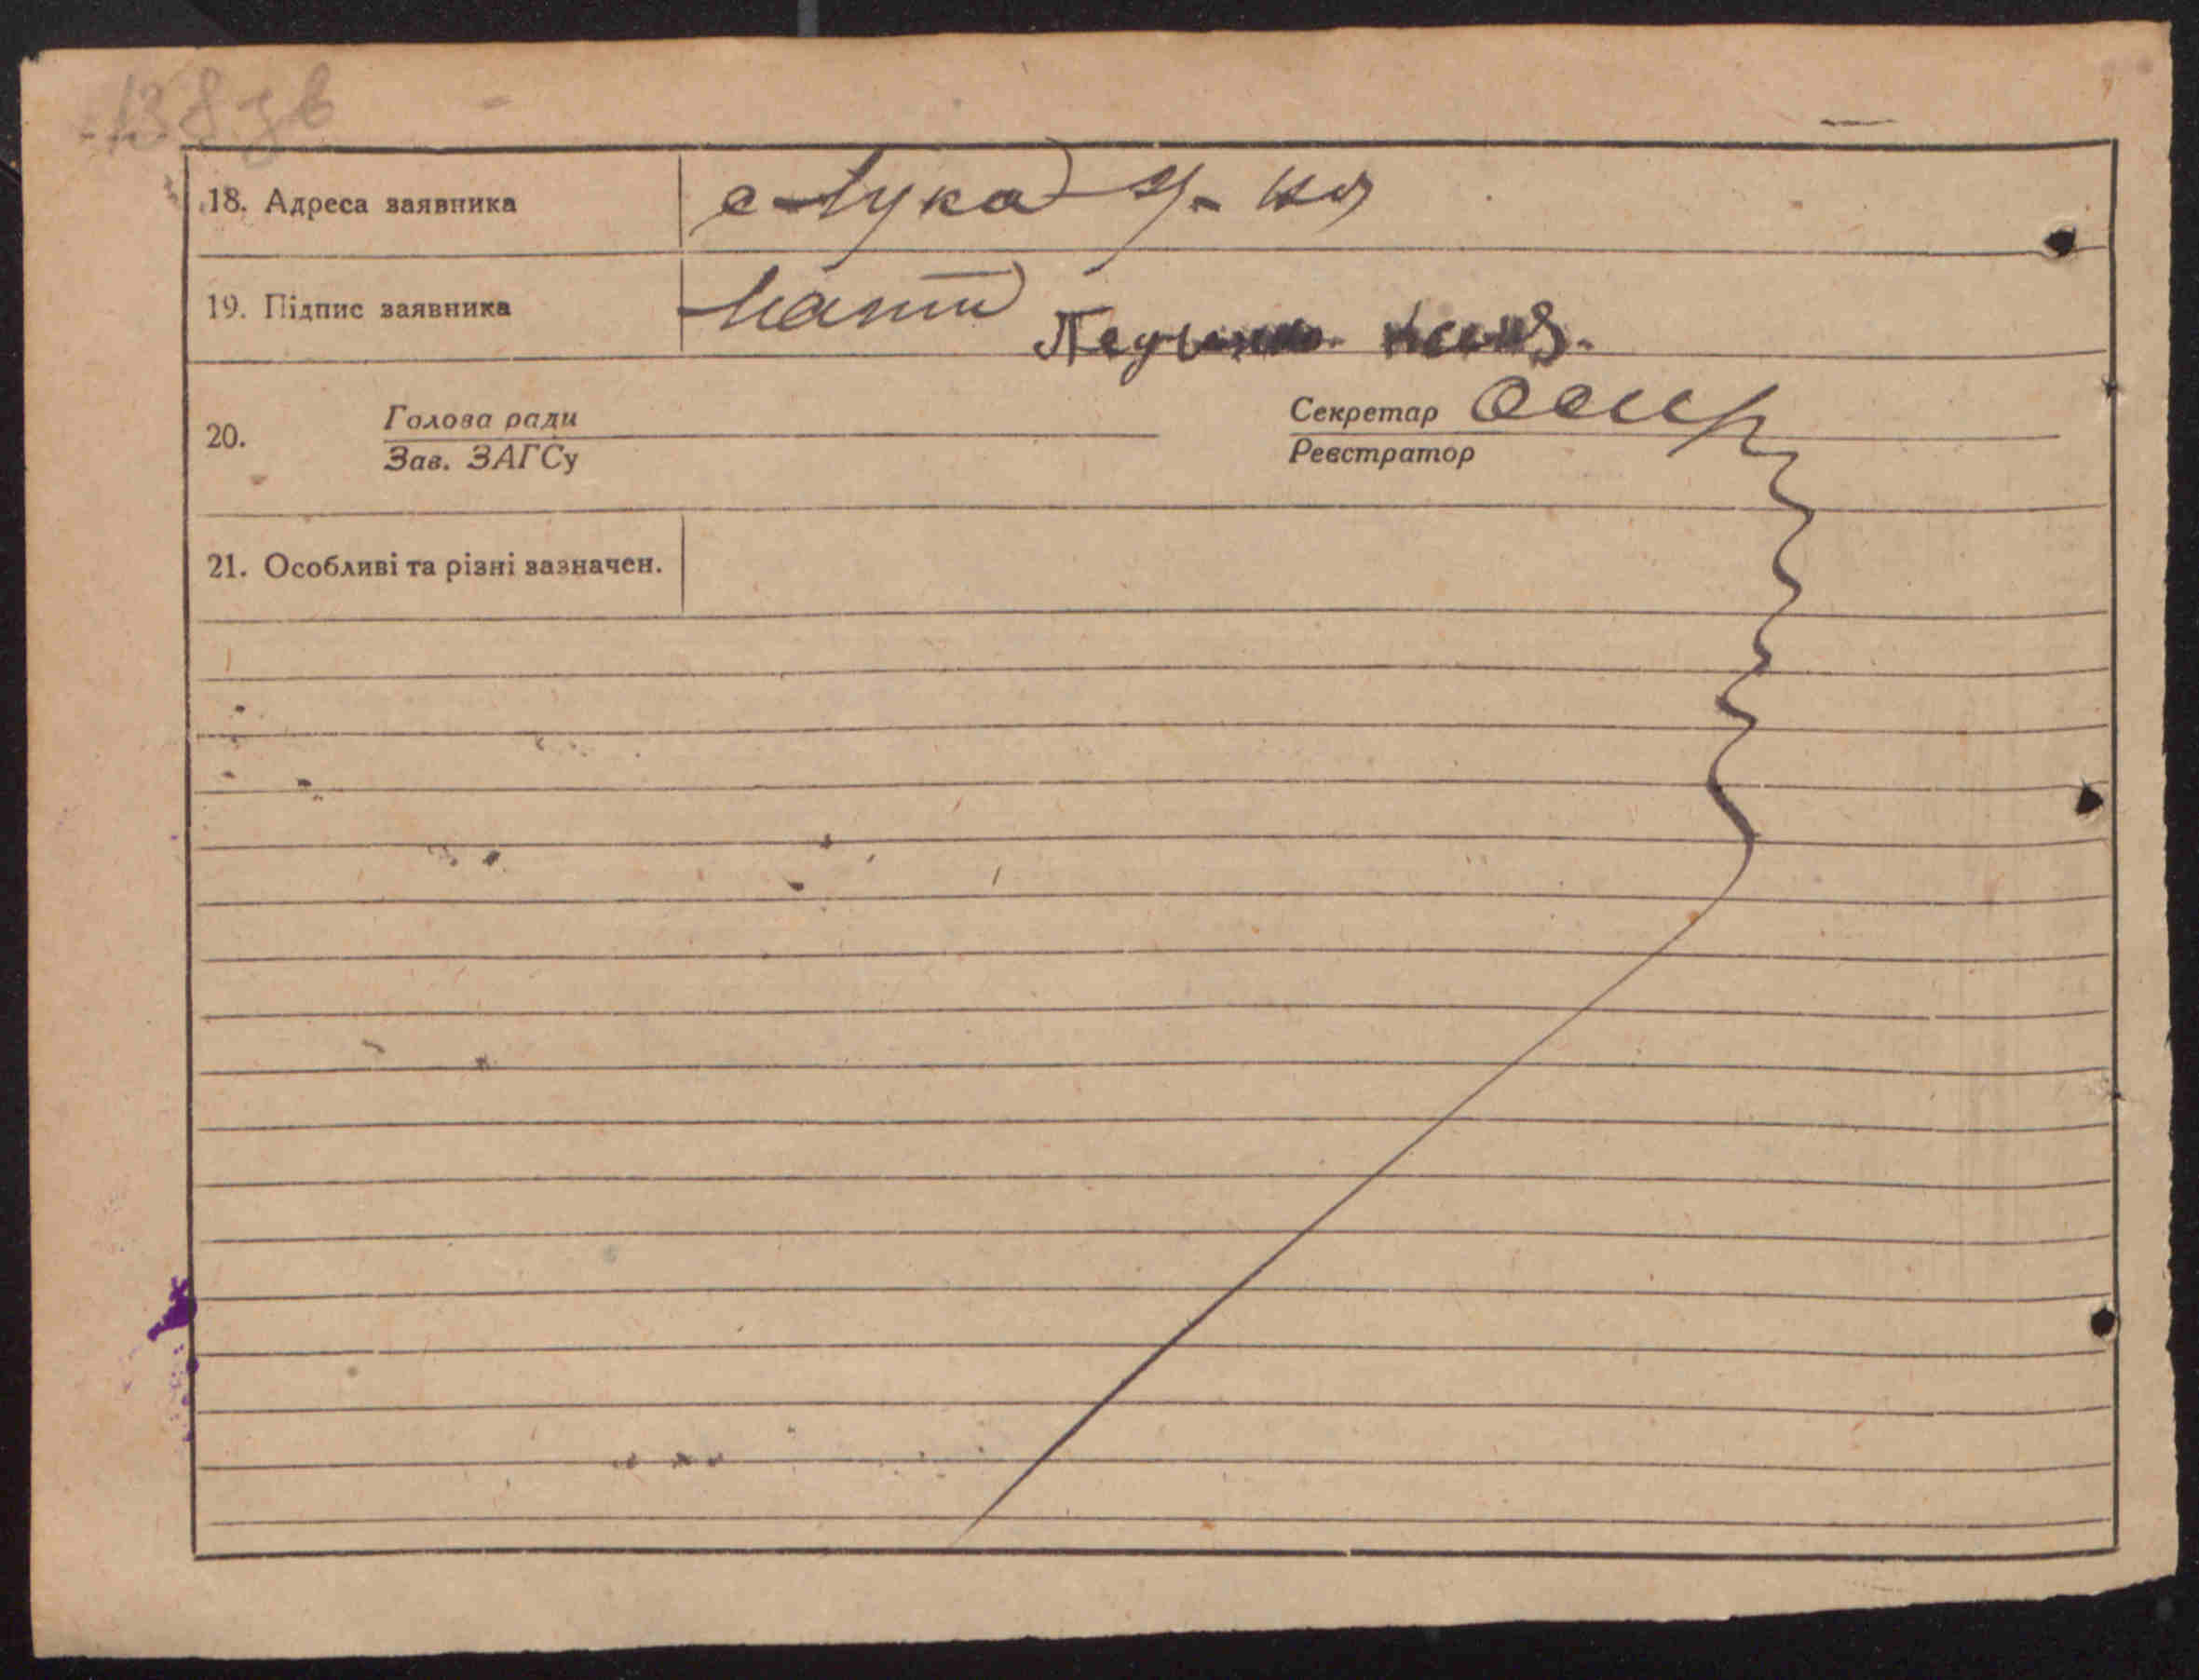 138 зв
18. Адреса заявника с Лука
19. Підпис заявника Мати
20. Голова ради Секретар
Зав. ЗАГСу Реєстратор
21. Особливі та різні зазначен.